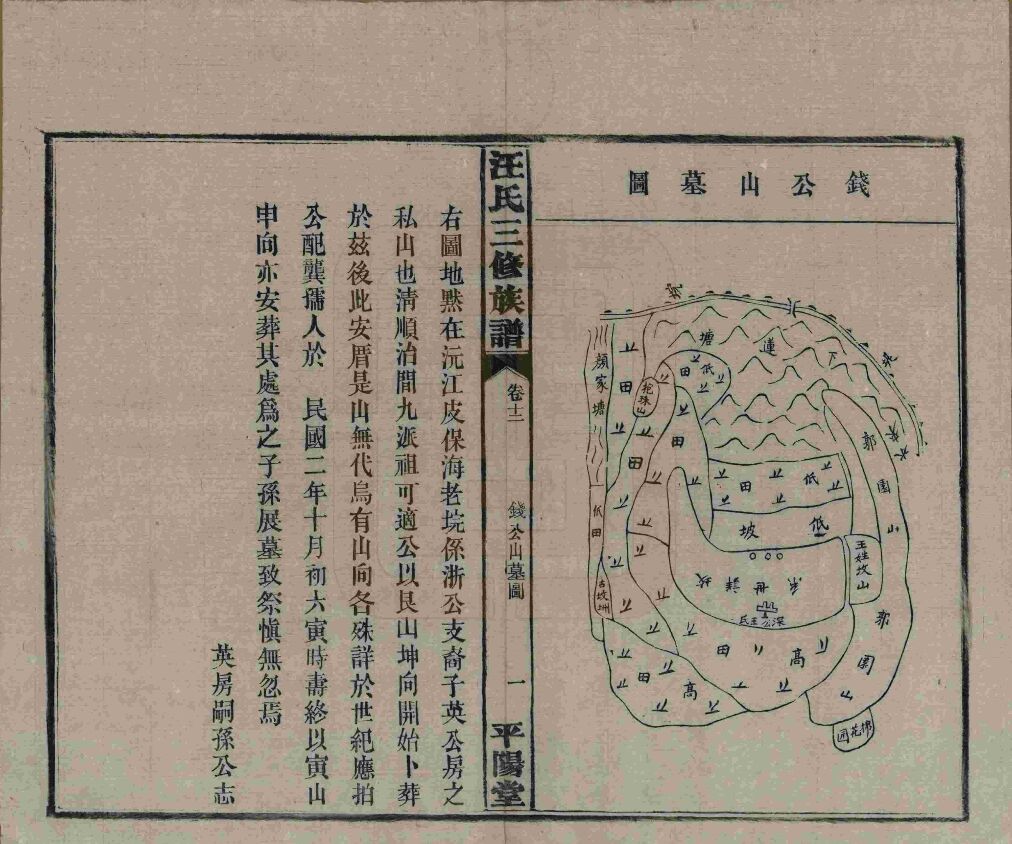 錢公山墓圖
坑
塘
蓮
下
顏家塘
田
低田
挖珠山
郭園山
田
田
低田
低
坡
低田
王姓坟山
古坟洲
深公王氏
郭園山
田
高
田
高
棉花园
汪氏三修族譜
卷十二
錢公山墓圖
一
平陽堂
右圖地黙在沅江皮保海老垸係浙公支裔子英公房之
私山也淸順治間九派祖可適公以艮山坤向開始卜葬
於玆後此安厝是山無代烏有山向各殊詳於世紀應拍
公配龔孺人於 民國二年十月初六寅時壽終以寅山
申向亦安葬其處爲之子孫展墓致祭愼無忽焉
英房嗣孫公志